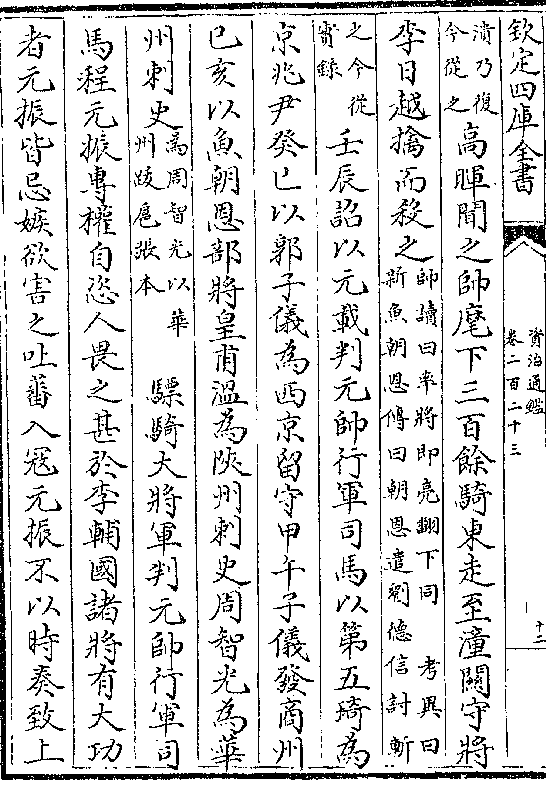 欽定四庫全書
資治通鑑
卷二百二十三
十二
瀆乃復
今從之
高暉聞之帥麾下三百餘騎東走至潼關守將
李日越擒而殺之
帥讀曰率將即亮翻下同 考異曰
新魚朝恩傳曰朝恩遣劉德信討斬
之今從
實録
壬辰詔以元載判元帥行軍司馬以第五琦為
京兆尹癸巳以郭子儀為西京留守甲午子儀發商州
己亥以魚朝恩部將皇甫溫為陜州刺史周智光為華
州刺史
為周智光以華
州跋扈張本
驃騎大將軍判元帥行軍司
馬程元振專權自恣人畏之甚於李輔國諸將有大功
者元振皆忌嫉欲害之吐蕃入寇元振不以時奏致上